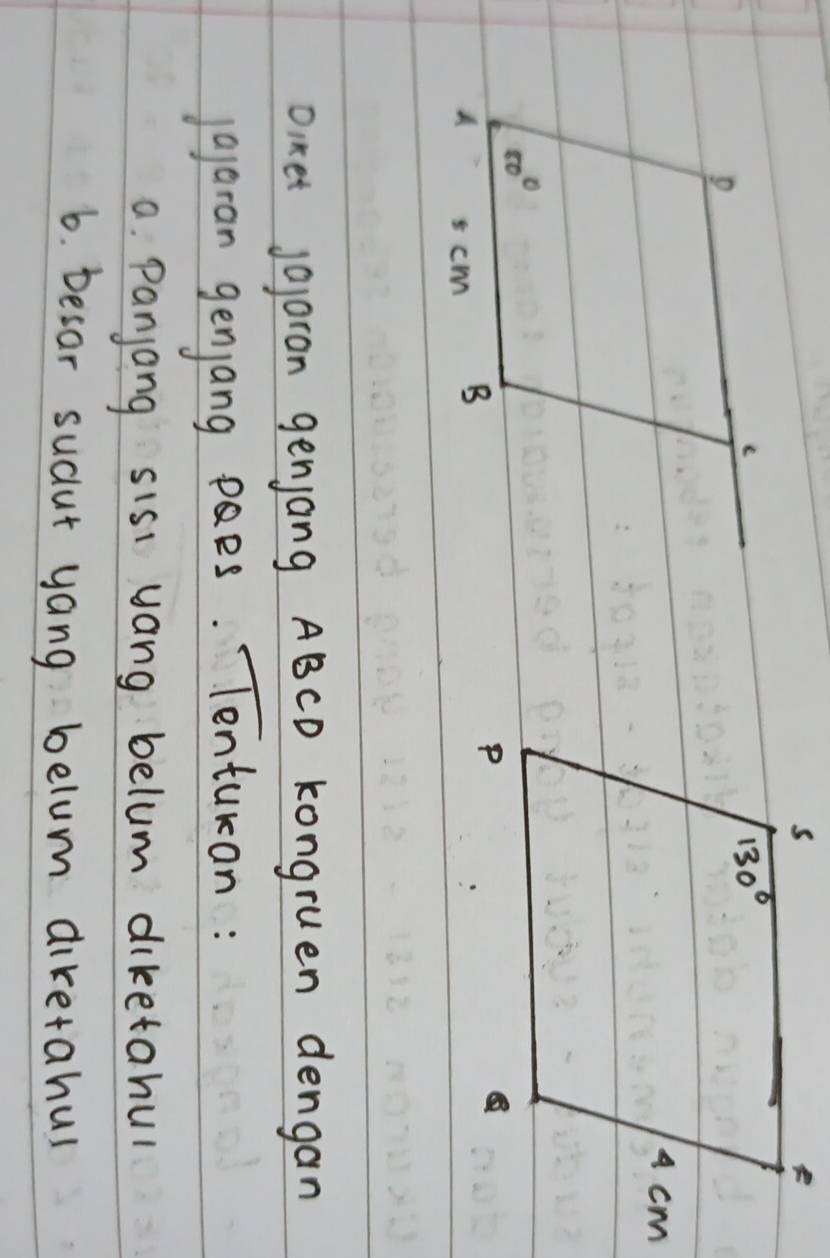 D C
50°
A B
S R
130°
4 cm
P Q
Diket jajaran genjang ABCD kongruen dengan
jajaran genjang PQRS. Tentukan:
a. Panjang sisi yang belum diketahui
b. besar sudut yang belum diketahui